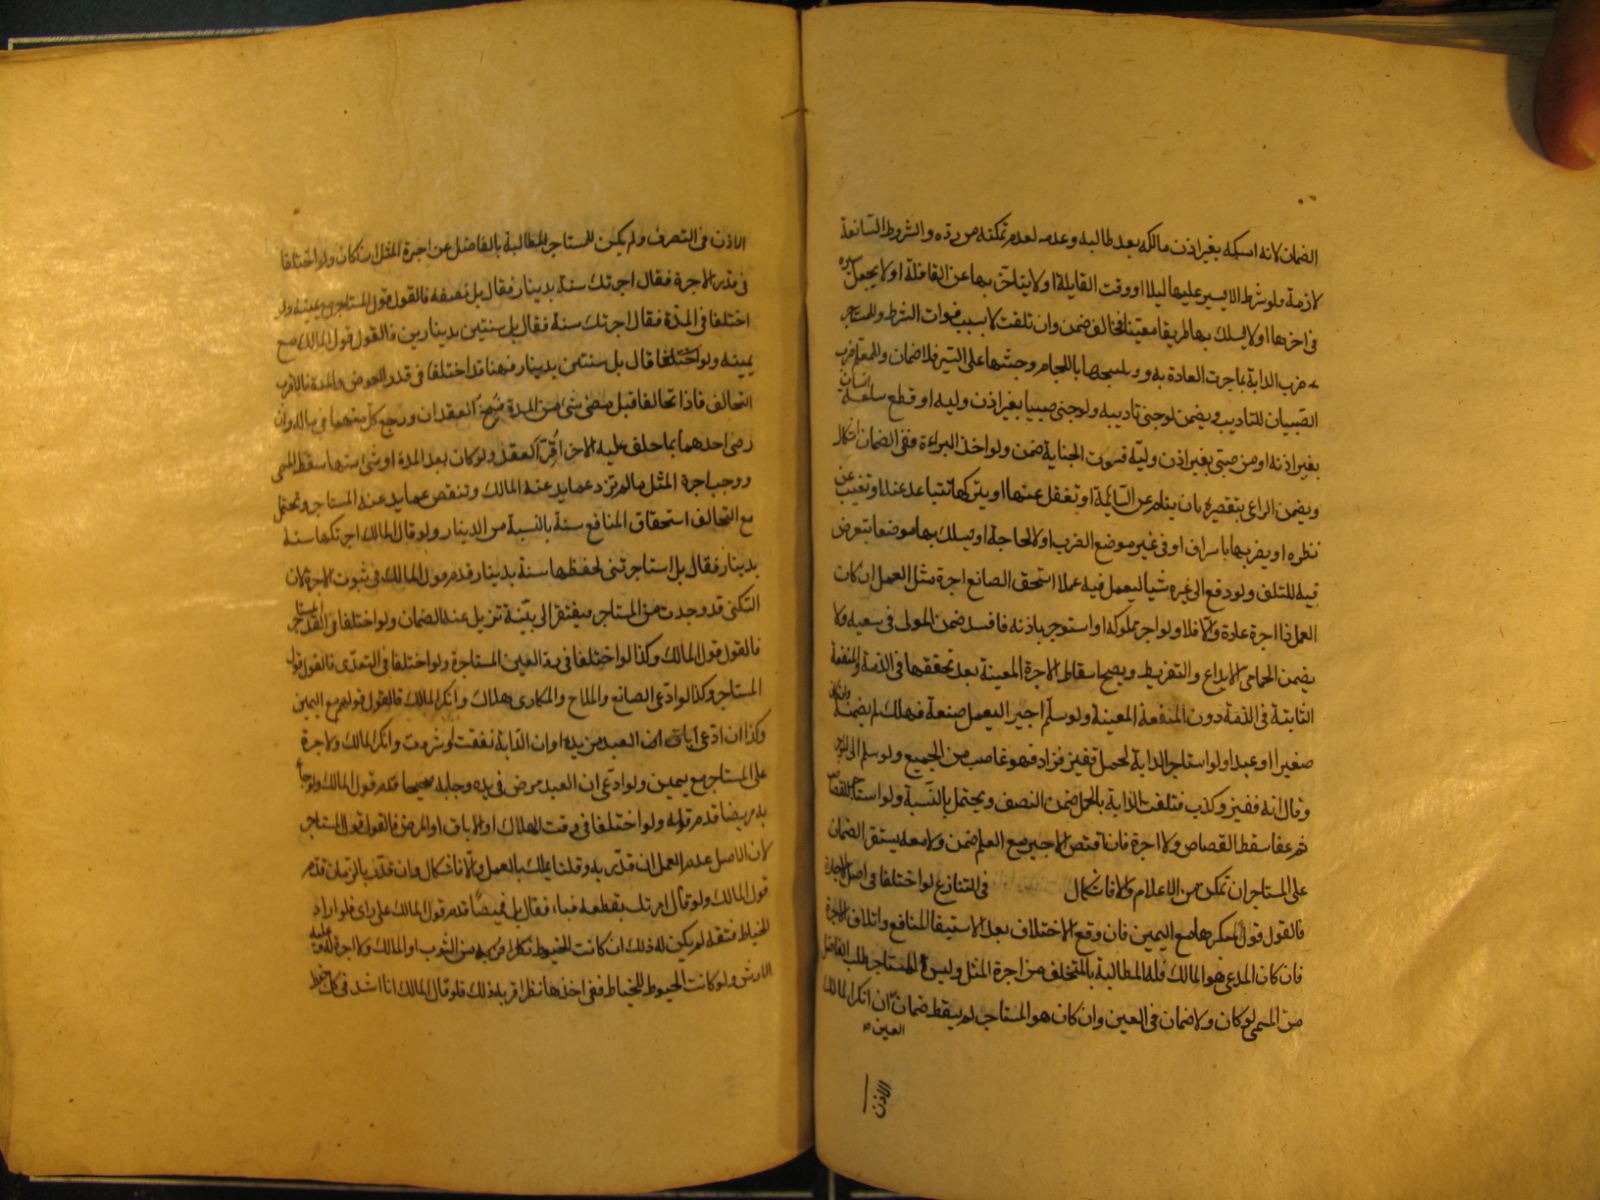 الضمان لانه امسكه بغير اذن مالكه بعد طالبه وعدمه لعدم تمكنه من رده والشروط السائغة
لازمة فلو شرط الا يسير عليها ليلا او وقت القايلة او لا يتاخر بها عن القافلة او لا يجعل سيره
في اخرها او لا يسلك بها طريقا معينا فخالف ضمن وان تلفت لا بسبب فوات الشرط وللمستاجر
ضرب الدابة بما جرت العادة به و يكبحها باللجام وحثها على السير فلا ضمان وللمعلم ضرب
الصبيان للتاديب ويضمن لو جنى تاديبه ولو جنى صبيا بغير اذن وليه او قطع سلعة انسان
بغير اذنه او من صبي بغير اذن وليه فسرت الجناية ضمن ولو اخذ البراءة ففي الضمان اشكال
ويضمن الراعي بتقصيره بان ينام عن السائمة او تغفل عنها او يتركها تتباعد عنه او تغيب عن
نظره او يضربها باسراف او في غير موضع الضرب او لا لحاجة او يسلك بها موضعا يتعرض
فيه للتلف ولو دفع الى غيره شيا ليعمل فيه عملا استحق الصانع اجرة مثل العمل ان كان
العمل ذا اجرة عادة والا فلا ولو اجر مملوكه او استوجر باذنه فافسد ضمن المولى في سعيه ولا
يضمن الحمامي الا بايداع والتفريط ويصح اسقاط الاجرة المعينة بعد تحققها في الذمة والمنفعة
الثابتة في الذمة دون المنفعة المعينة ولو سلم اجيرا ليعمل صنعة فهلك لم يضمنه وان كان
صغيرا او عبدا ولو استاجر الدابة لحمل قفيز فزاد فهو غاصب من الجميع ولو سلم الى الموجر
وقال انه قفيز وكذب فتلفت الدابة بالحمل ضمن النصف ويحتمل بالنسبة ولو استاجر للقصاص
ثم عفا سقط القصاص ولا اجرة فان اقتص الاجير مع العلم ضمن ولا معه يستقر الضمان
على المستاجر ان تمكن من الاعلام والا فاشكال في التنازع لو اختلفا في اصل الاجارة
فالقول قول منكرها مع اليمين فان وقع الاختلاف بعد الاستيفا للمنافع واتلاف الاجرة
فان كان المدعي هو المالك فله المطالبة بالمتخلف من اجرة المثل وليس للمستاجر طلب الفاضل
من المسمى لو كان ولا ضمان في العين وان كان هو المستاجر لم يسقط ضمان ان انكر المالك
العين صح
الاذن
الاذن في التصرف ولم يكن للمستاجر المطالبة بالفاضل عن اجرة المثل ان كان ولو اختلفا
في قدر الاجرة فقال اجرتك سنة بدينار فقال بل نصفه فالقول قول المستاجر مع يمينه ولو
اختلفا في المدة فقال اجرتك سنة فقال بل سنتين بدينارين فالقول قول المالك مع
يمينه ولو اختلفا قال بل سنتين بدينار فهنا قد اختلفا في قدر العوض والمدة فالاقرب
التحالف فاذا تحالفا قبل مضي شيء من المدة فسخ العقدان ورجع كل منهما في ماله وان
رضي احدهما بما حلف عليه الاخر اقر العقد ولو كان بعد المدة او شيء منها سقط المسمى
ووجب اجرة المثل ما لم تزد عما يدعيه المالك وتنقص عما يدعيه المستاجر ويحتمل
مع التحالف استحقاق المنافع سنة بالنسبة من الدينار ولو قال المالك اجرتكها سنة
بدينار فقال بل استاجرتني لحفظها سنة بدينار قدم قول المالك في ثبوت الاجرة لان
السكنى قد وجدت من المستاجر فيفتقر الى بينة تزيل عنه الضمان ولو اختلفا في القدر المستاجر
فالقول قول المالك وكذا لو اختلفا في رد العين المستاجرة ولو اختلفا في التعدي فالقول قول
المستاجر وكذا لو ادعى الصانع والملاح والمكاري هلاك وانكر المالك فالقول قولهم مع اليمين
وكذا ان ادعى اباق العبد من يده او ان الدابة نفقت او شردت وانكر المالك ولا اجرة
على المستاجر مع يمين ولو ادعى ان العبد مرض في يده وجا به صحيحا قدم قول المالك ولو جا
به مريضا قدم قوله ولو اختلفا في وقت الهلاك او الاباق او المرض فالقول قول المستاجر
لان الاصل عدم العمل ان قدر به وقلنا يملك بالعمل والا فاشكال وان قدر بالزمان قدم
قول المالك ولو قال امرتك بقطعه قبا، فقال بل قميصا قدم قول المالك على راي فلو اراد
الخياط فتقه لم يكن له ذلك ان كانت الخيوط من الثوب او المالك ولا اجرة له وعليه
الارش ولو كانت الخيوط للخياط ففي اخذها نظر اقربه ذلك فلو قال المالك انا اشد في كل خيط